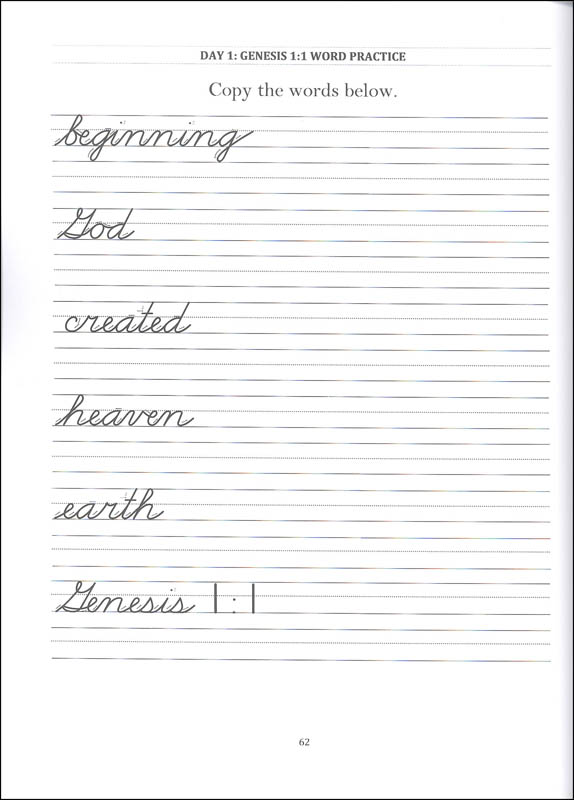 DAY 1: GENESIS 1:1 WORD PRACTICE
Copy the words below.
beginning
God
created
heaven
earth
Genesis 1:1
62